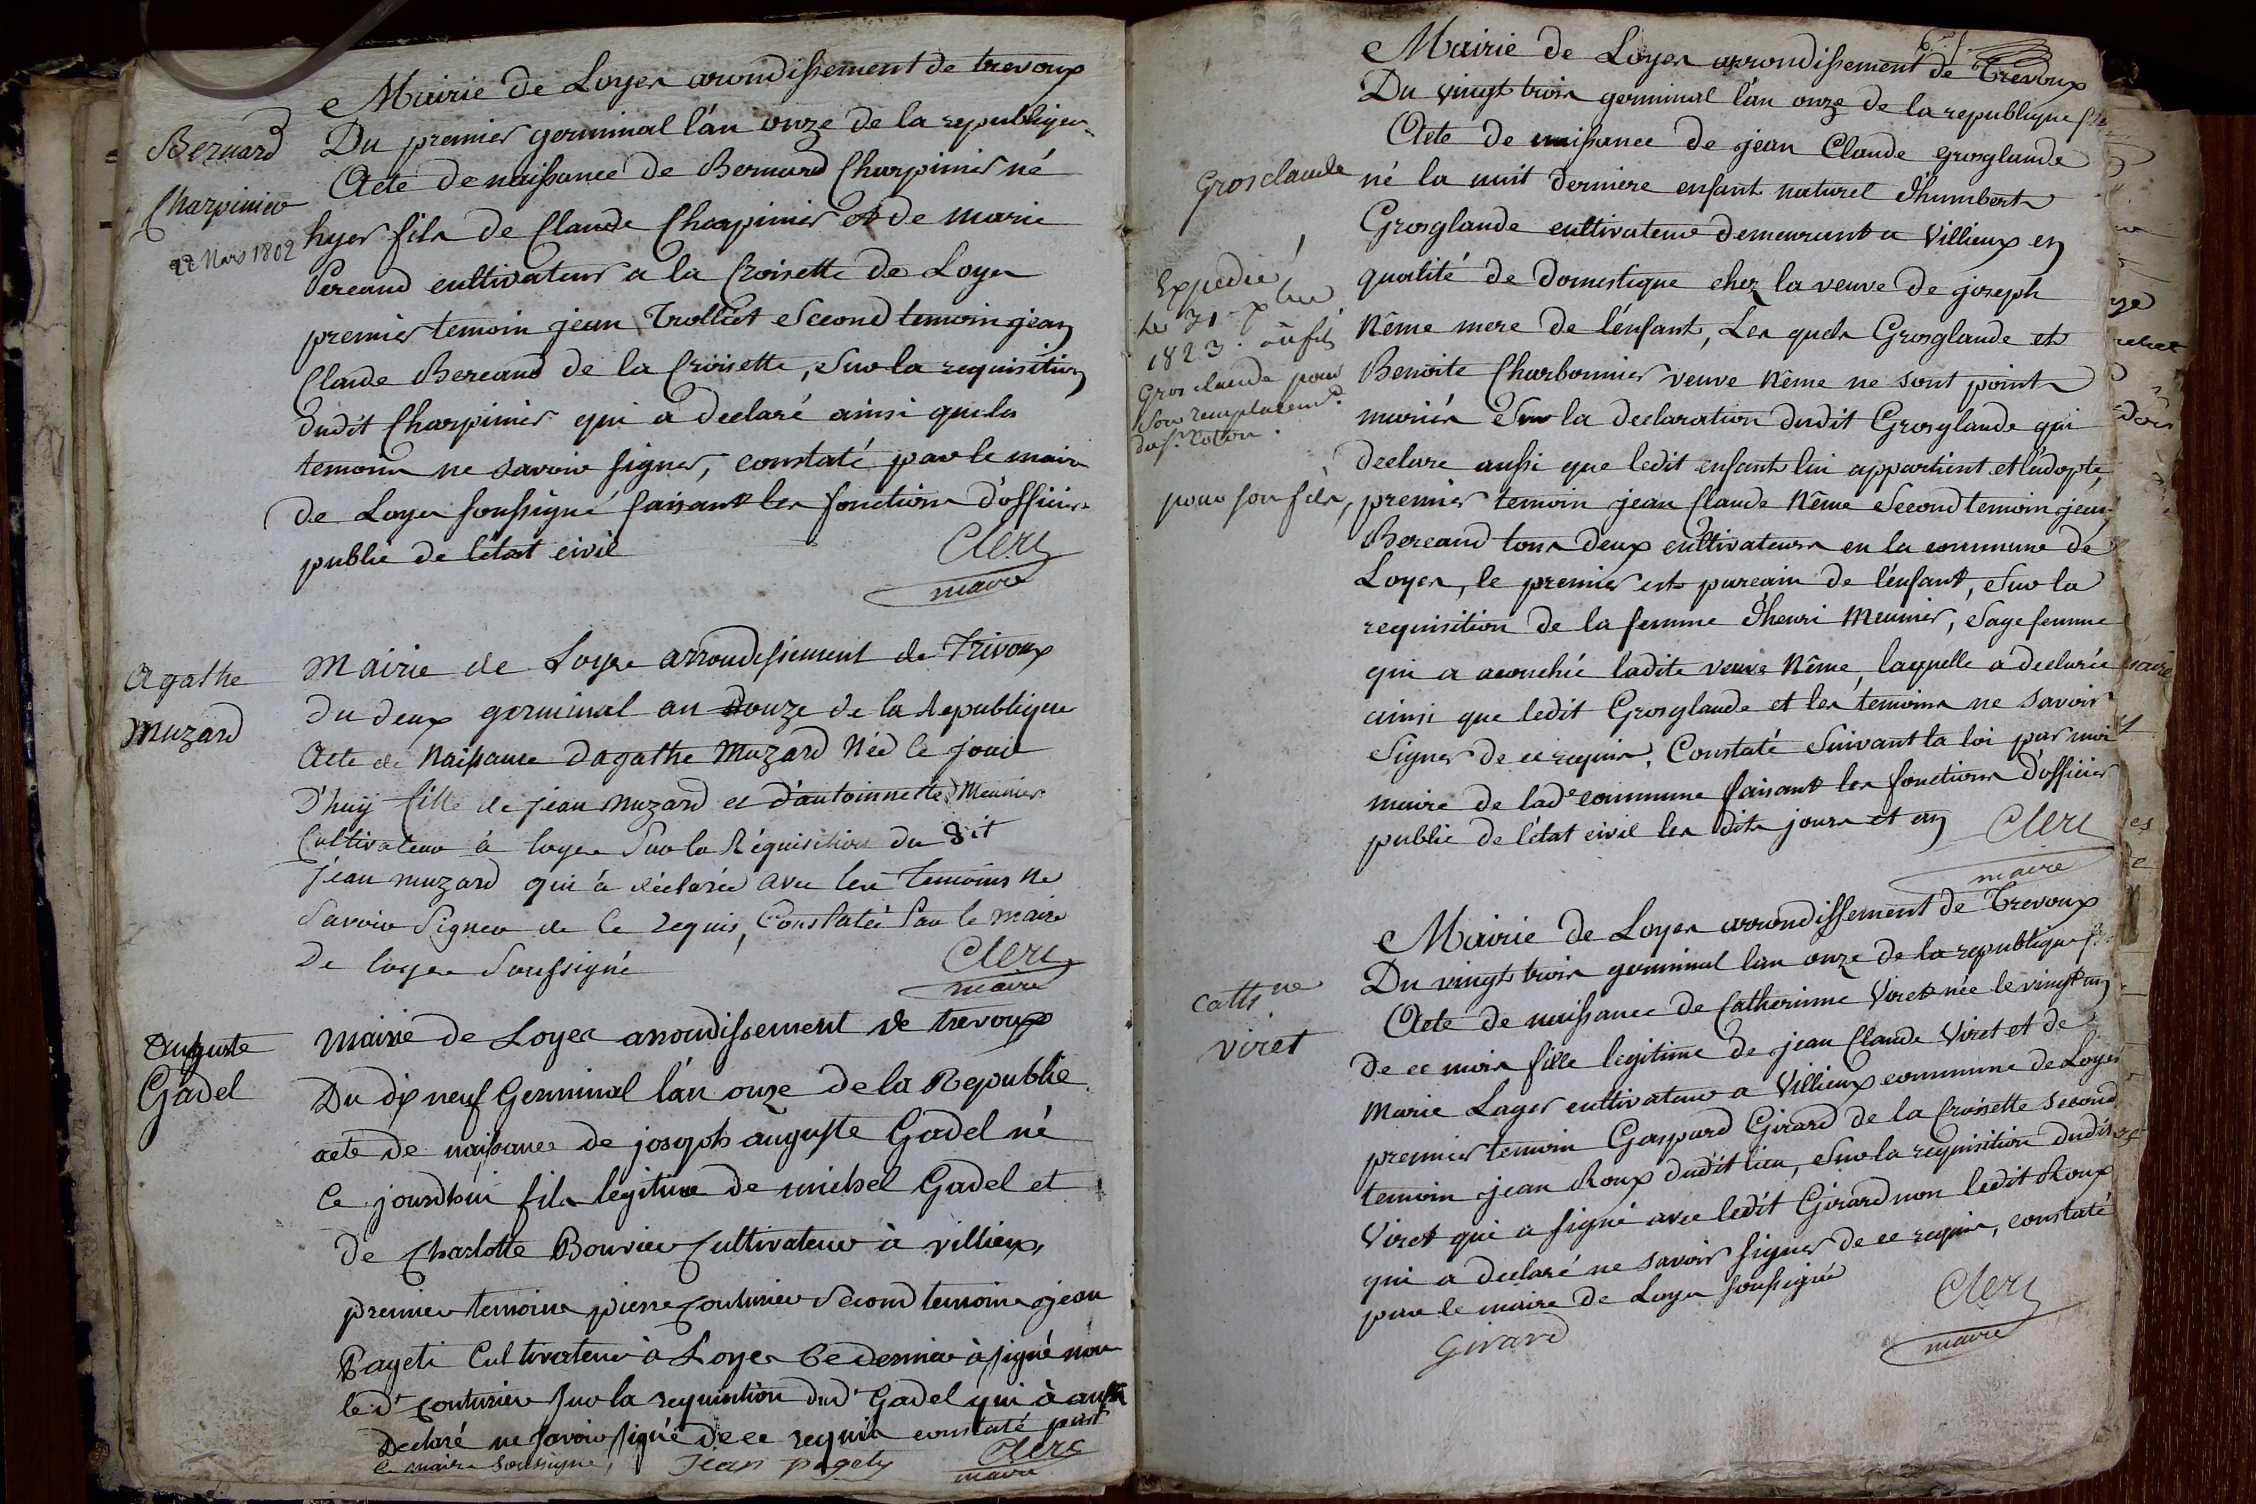 Mairie de Loyes arondissement de trevoux
Bernard
Du premier germinal l'an onze de la republique
Acte de naissance de Bernard Charpinier né
Charpinier
hyer fils de Claude Charpinier et de marie
22 Mars 1802
Bereaud cultivateur a la Croisette de Loyes
premier temoin jean Trolliet Second temoin jean
Claude Bereaud de la Croisette, Sur la requisition
dudit Charpinier qui a declaré ainsi que les
temoins ne savoir signer, constaté par le maire
de Loyes soussigné faisant les fonctions d'officier
public de l'état civil
Clerc
maire
Agathe
Muzard
Mairie de Loyes arrondissement de Trivoux
du deux germinal an onze de la Republique
Acte de Naissance dagathe Muzard Née le jour
D'huy fille de jean Muzard et d'antoinette Meunier
Cultivateur à loyes Sur la Réquisition du dit
jean muzard qui à déclarée avec les Temoins ne
Savoir Signer de Ce requis, Constatée Par le maire
De loyes Soussigné
Clerc
maire
Auguste
Gadel
Mairie de Loyes arrondissement de trevoux
Du dix neuf Germinal l'an onze de la Republic
acte de naissance de joseph auguste Gadel né
Ce jourdhui fils legitime de michel Gadel et
de Charlotte Bouvier Cultivateur à villieux,
premier temoins pierre Couturier Second temoins jean
Pageti Cultivateur à Loyes Ce dernier à signé non
le dt Couturier sur la requisition dud' Gadel qui à aussi
Declaré ne savoir signé de ce requis constaté par
le maire soussigné,
Jean pagety
Clerc
maire
Mairie de Loyes arrondissement de Trevoux
Du vingt trois germinal l'an onze de la republique
Acte de naissance de jean Claude grosglaude
Grosclaude
né la nuit derniere enfant naturel d'humbert
Grosglaude cultivateur demeurant a Villieux en
qualité de domestique chez la veuve de joseph
Expedié
le 31
1823. au fils
Gros claude pour
Son remplacemt.
Nême mere de l'enfant, Les quels Grosglaude et
Benoite Charbonnier veuve Nême ne sont point
mariés Sur la declaration dudit Grosglaude qui
declare aussi que ledit enfant lui appartient et l'adopte
pour son fils, premier temoin jean Claude Nême Second temoin jean
Bereaud tous deux cultivateurs en la commune de
Loyes, le premier est parcain de l'enfant, Sur la
requisition de la femme d'henri Meunier, Sage femme
qui a acouchée ladite veuve Nême, laquelle a declarée
ainsi que ledit Grosglaude et les temoins ne savoir
Signer de ce requis, Constaté Suivant la loi par moi
maire de lade commune faisant les fonctions d'officier
public de l'état civil les dits jours et an
Clerc
maire
Mairie de Loyes arrondissement de Trevoux
Du vingt trois germinal lan onze de la republique
Cathne
viret
Acte de naissance de Catherinne Viret née le vingt un
de ce mois fille legitime de jean Claude Viret et de
Marie Lager cultivateur a Villieux commune de Loyes
premier temoin Gaspard Girard de la Croisette second
temoin jean Roux dudit lieu, Sur la requisition dudit
Viret qui a signé avec ledit Girard non ledit Roux
qui a declaré ne savoir signer de ce requis, constaté
par le maire de Loyes soussigné
Girard
Clerc
maire